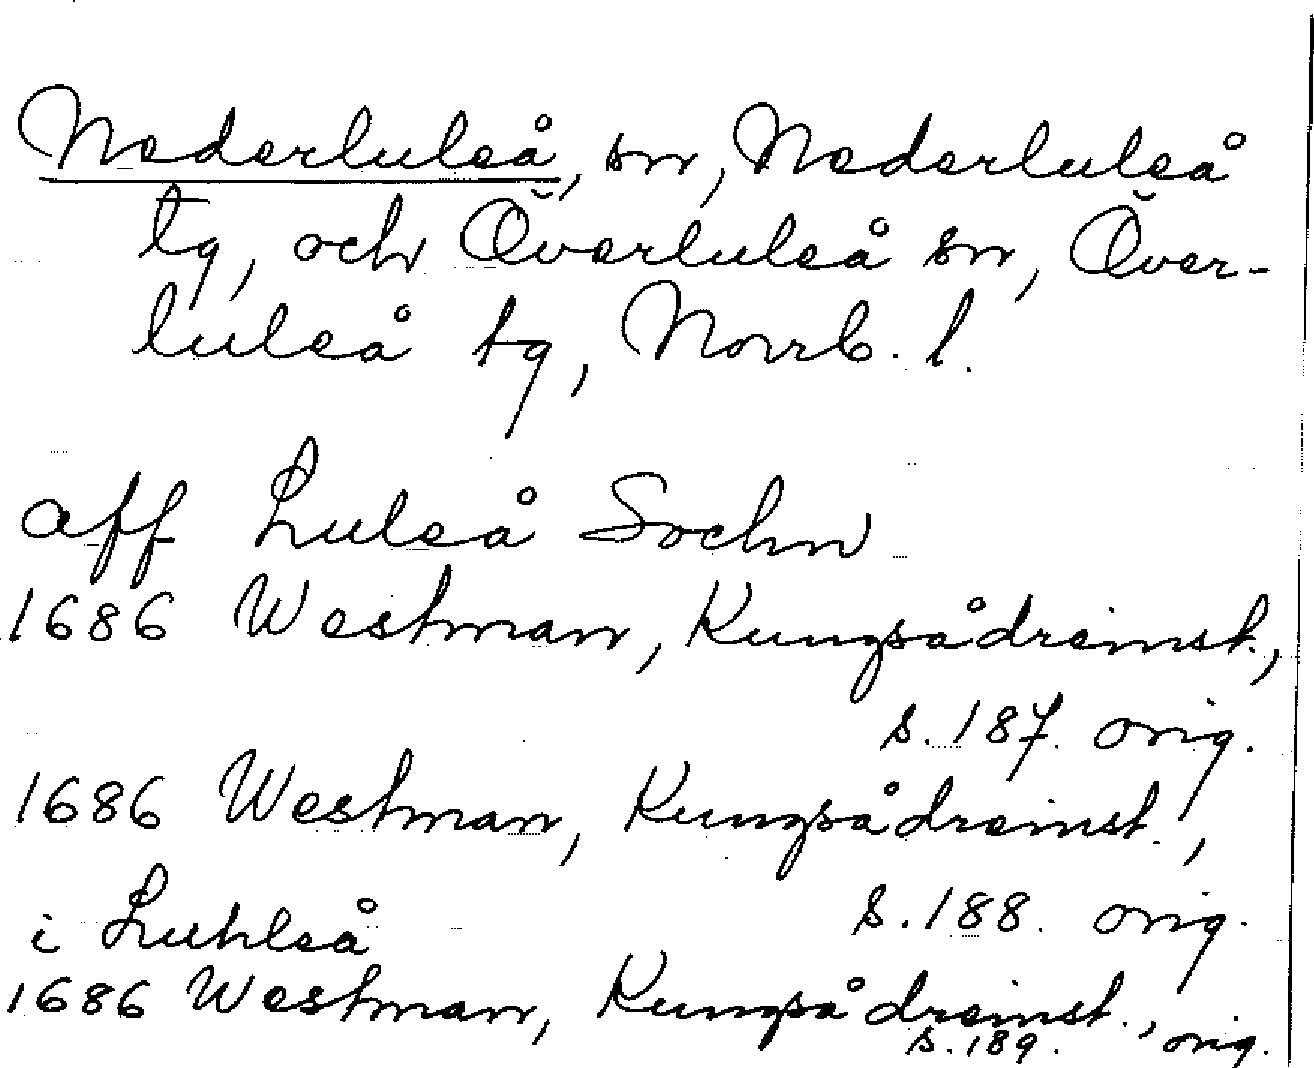 Nederluleå, sn, Nederluleå
tg, och Överluleå sn, Över-
luleå tg, Norrb. l.
aff Luleå Sochn
1686 Westman, Kungsådreinst.,
s. 187. orig.
1686 Westman, Kungsådreinst.,
s. 188. orig.
i Luhleå
1686 Westman, Kungsådreinst.,
s. 189. orig.